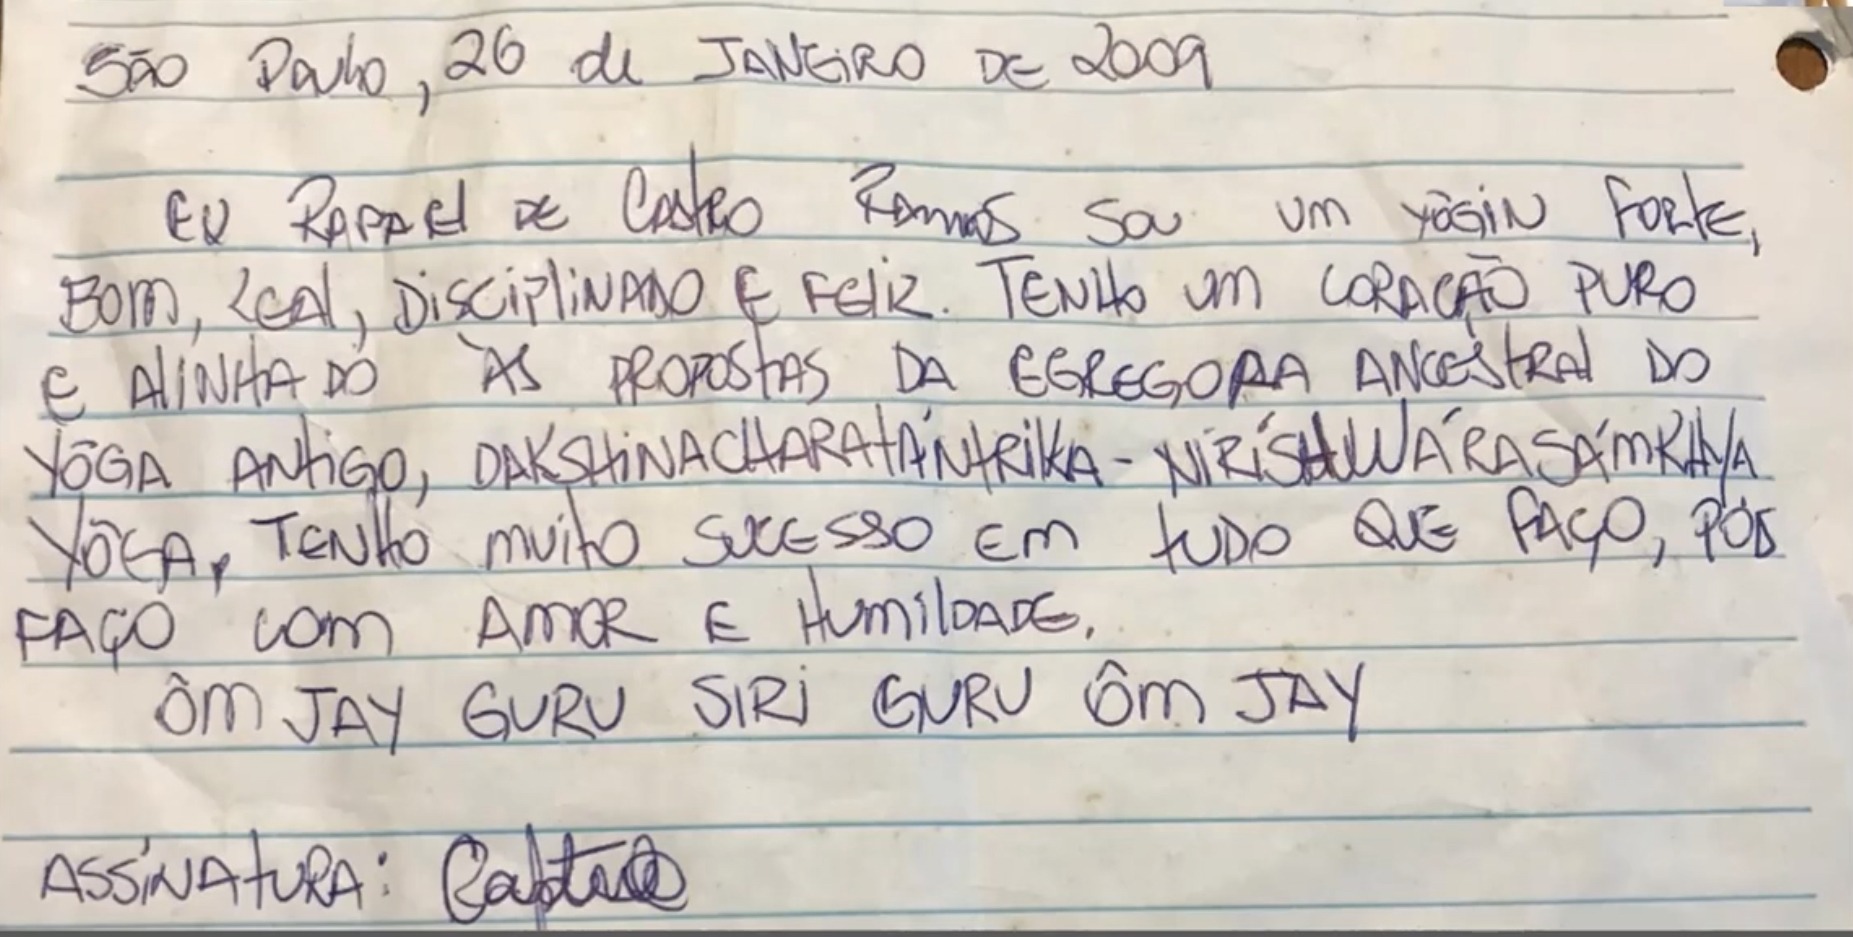 São Paulo, 26 de JANEIRO DE 2009
EU RAFAEL DE CASTRO RAMOS SOU UM YÔGIN FORTE,
BOM, LEAL, DISCIPLINADO E FELIZ. TENHO UM CORAÇÃO PURO
E ALINHADO ÀS PROPOSTAS DA EGREGORA ANCESTRAL DO
YÔGA ANTIGO, DAKSHINACHARATÁNTRIKA-NIRÍSHWÁRASÁMKHYA
YÔGA, TENHO MUITO SUCESSO EM TUDO QUE FAÇO, POIS
FAÇO COM AMOR E HUMILDADE.
ÔM JAY GURU SIRI GURU ÔM JAY
ASSINATURA: